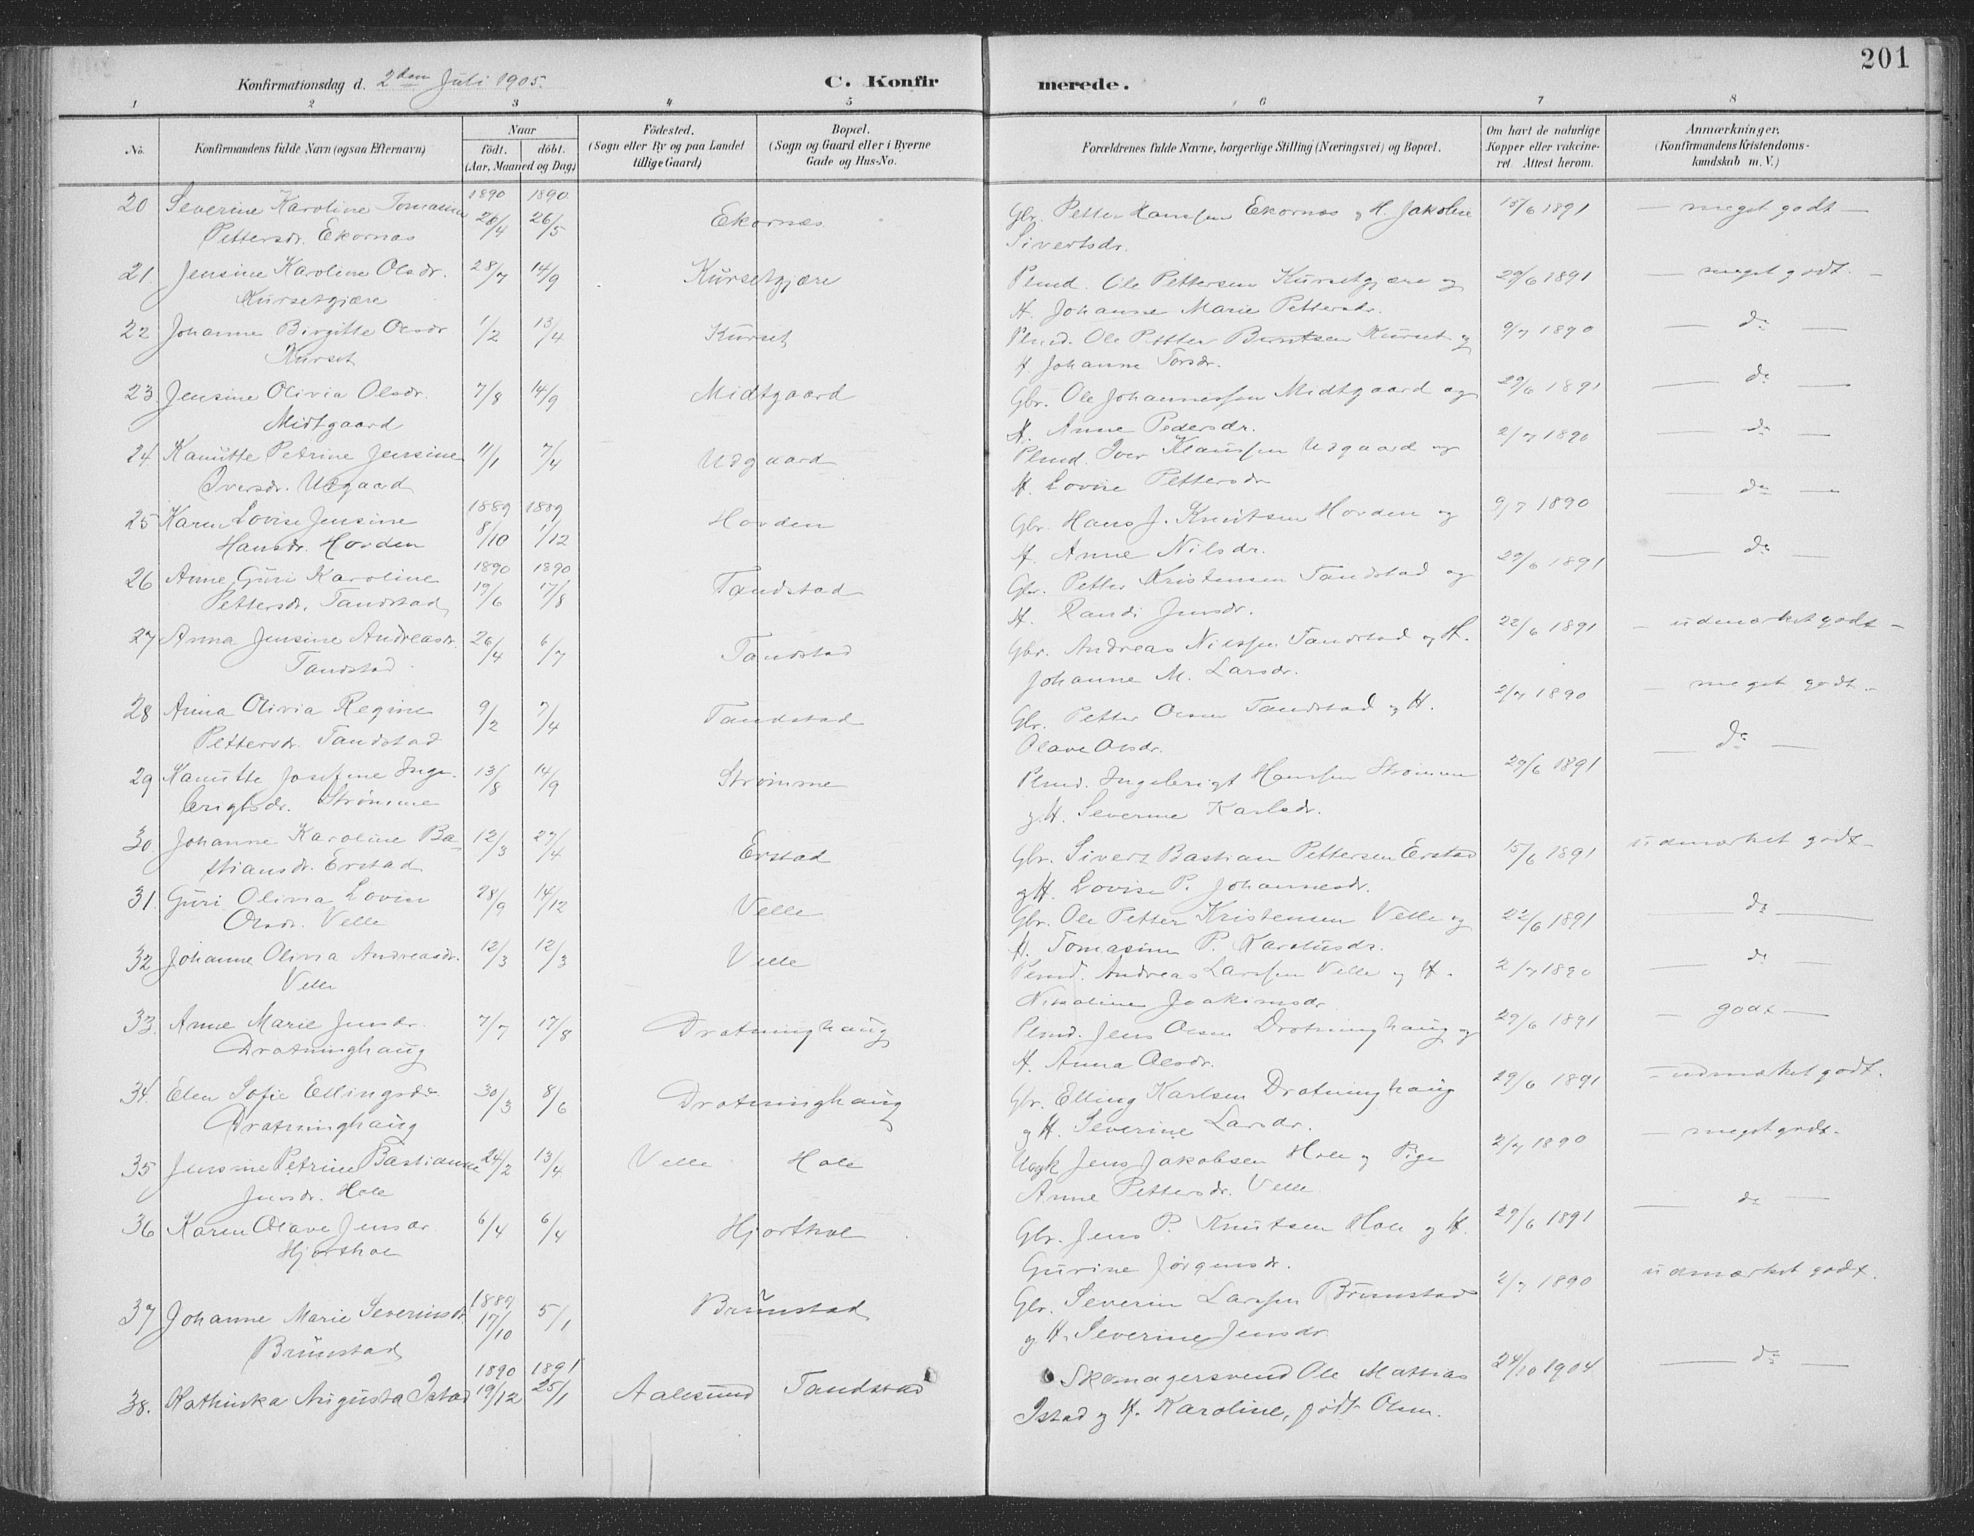 201
Konfirmationsdag d. 2den Juli 1905.
C. Konfir merede.
1 2 3 4 5 6 7 8
No. Konfirmandens fulde Navn (ogsaa Efternavn) Naar Födested. Bopæl. Forældrenes fulde Navne, borgerlige Stilling (Næringsvei) og Bopæl. Om havt de naturlige Anmærkninger.
födt. döbt. (Sogn eller By og paa Landet tillige Gaard) (Sogn og Gaard eller i Byerne Gade og Hus-No. Kopper eller vakcineret. Attest herom. (Konfirmandens Kristendomskundskab m. V.)
(Aar, Maaned og Dag)
1890 1890
20 Severine Karoline Tomasine 26/4 26/5 Ekornæs Gbr. Petter Hanssen Ekornæs og H. Jakobine 15/6 1891 — meget godt —
Pettersdr. Ekornæs Sivertsdr.
21 Jensine Karoline Olsdr. 28/7 14/9 Kursetgjære Plmd. Ole Pettersen Kursetgjære og 29/6 1891 — meget godt. —
Kursetgjære H. Johanne Marie Pettersdr.
22 Johanne Birgitte Olsdr 1/2 13/4 Kurset Plmd. Ole Petter Berntsen Kurset og 9/7 1890 — do —
Kurset H Johanne Torsdr.
23 Jensine Olivia Olsdr. 7/8 14/9 Midtgaard Gbr. Ole Johannessen Midtgaard og 29/6 1891 — do —
Midtgaard H. Anne Pedersdr.
24 Kanutte Petrine Jensine 11/1 7/4 Udgaard Plmd. Iver Klaussen Udgaard og 2/7 1890 — do —
Iversdr. Udgaard H. Lovise Pettersdr
1889 1889
25 Karen Lovise Jensine 8/10 1/12 Hovden Gbr. Hans J. Knutsen Hovden og 9/7 1890 — do —
Hansdr. Hovden H. Anne Nilsdr.
1890 1890
26 Anne Guri Karoline 19/6 17/8 Tandstad Gbr. Petter Kristensen Tandstad og 29/6 1891 — do —
Pettersdr. Tandstad H. Randi Jensdr.
27 Anna Jensine Andreasdr. 26/4 6/7 Tandstad Gbr. Andreas Nilssen Tandstad og H. 22/6 1891 — udmærket godt —
Tandstad Johanne M. Larsdr.
28 Anna Olivia Regine 9/2 7/4 Tandstad Gbr. Petter Olsen Tandstad og H. 2/7 1890 — meget godt. —
Pettersdr. Tandstad Olave Olsdr.
29 Kanutte Josefine Inge- 13/8 14/9 Strømme Plmd. Ingebrigt Hanssen Strømme 29/6 1891 — do —
brigtsdr. Strømme og H. Severine Karlsdr.
30 Johanne Karoline Ba- 12/3 27/4 Erstad Gbr. Sivert Bastian Pettersen Erstad 15/6 1891 udmærket godt —
stiansdr. Erstad og H. Lovise P. Johannesdr.
31 Guri Olivia Lovise 28/9 14/12 Velle Gbr. Ole Petter Kristensen Velle og 22/6 1891 — do —
Olsdr. Velle H. Tomasine P. Karolusdr.
32 Johanne Olivia Andreasdr. 12/3 12/3 Velle Plmd. Andreas Larssen Velle og H. 2/7 1890 — do —
Velle Nikoline Joakimsdr
33 Anne Marie Jensdr. 7/7 17/8 Drotninghaug Plmd. Jens Olsen Drotninghaug og 29/6 1891 — godt —
Drotninghaug H. Anna Olsdr.
34. Elen Sofie Ellingsdr 30/3 8/6 Drotninghaug Gbr. Elling Karlsen Drotninghaug 29/6 1891 — udmærket godt.
Drotninghaug og H. Severine Larsdr.
35 Jensine Petrine Bastianne 24/2 13/4 Velle Hole Ugk Jens Jakobsen Hole og Pige 2/7 1890 — meget godt.
Jensdr. Hole Anne Pettersdr. Velle
36 Karen Olave Jensdr. 6/4 6/4 Hjorthol Gbr. Jens P. Knutsen Hole og H. 29/6 1891 — do —
Hjorthol Gurine Jørgensdr.
1889
37 Johanne Marie Severinsdr 17/10 5/1 Brunstad Gbr. Severin Larssen Brunstad 2/7 1890 udmærket godt.
Brunstad og H. Severine Jensdr.
1890 1891
38. Kathinka Augusta Istad 19/12 25/1 Aalesund Tandstad Skomagersvend Ole Mathias 24/10 1904 — do —
Istad og H. Karoline, født Olsen.